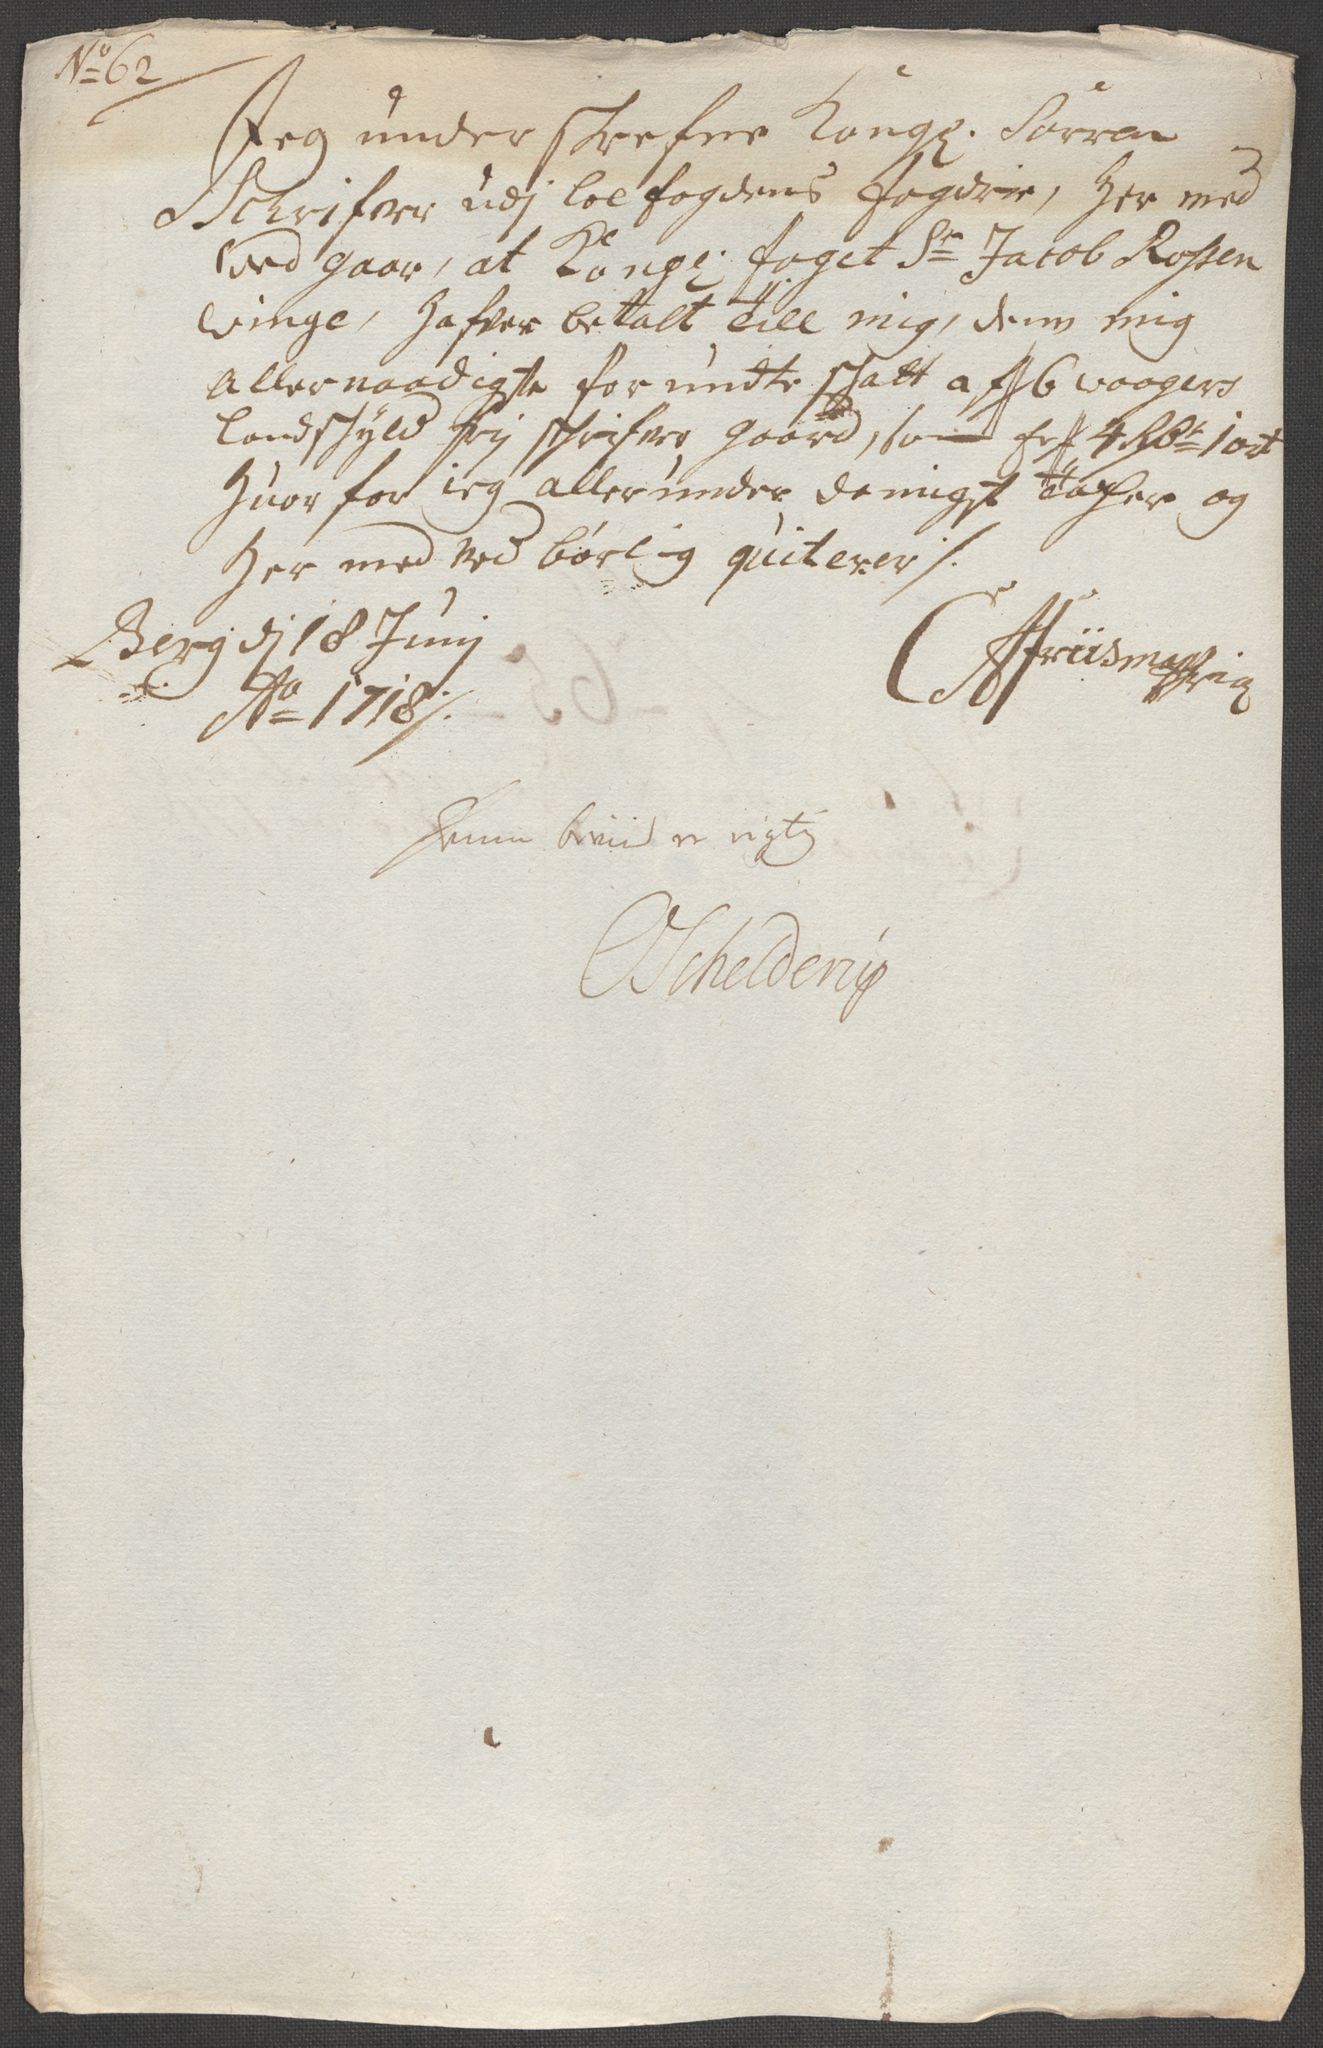 No 62
Jeg under skrefne Kongl. Sorren
Schrifver udj loc fogdens fogdrie, Her med
ved gaar, at Kongl: foget Sr Jacob Rossen
winge, Hafver betalt till mig, denn mig
allernaadigste forundte skatt aff 6 vaagers
landskyld frj schrifver gaard, som er 4 Rdr 1 ort
Huor for ieg allerunder danigst tacher og
Her med ved børlig quiterer /.
Berg dj 18 Junij
Ao 1718/.
Friis
Denne beviis er rigtig
Schelderup